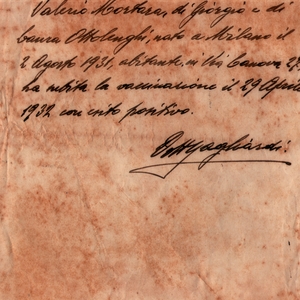 Valerio Mortara, di Giorgio e di
Laura Ottolenghi, nato a Milano il
2 Agosto 1931, abitante in Via Canova 23,
ha subita la vaccinazione il 29 Aprile
1932 con esito positivo.
Dott Gagliardi